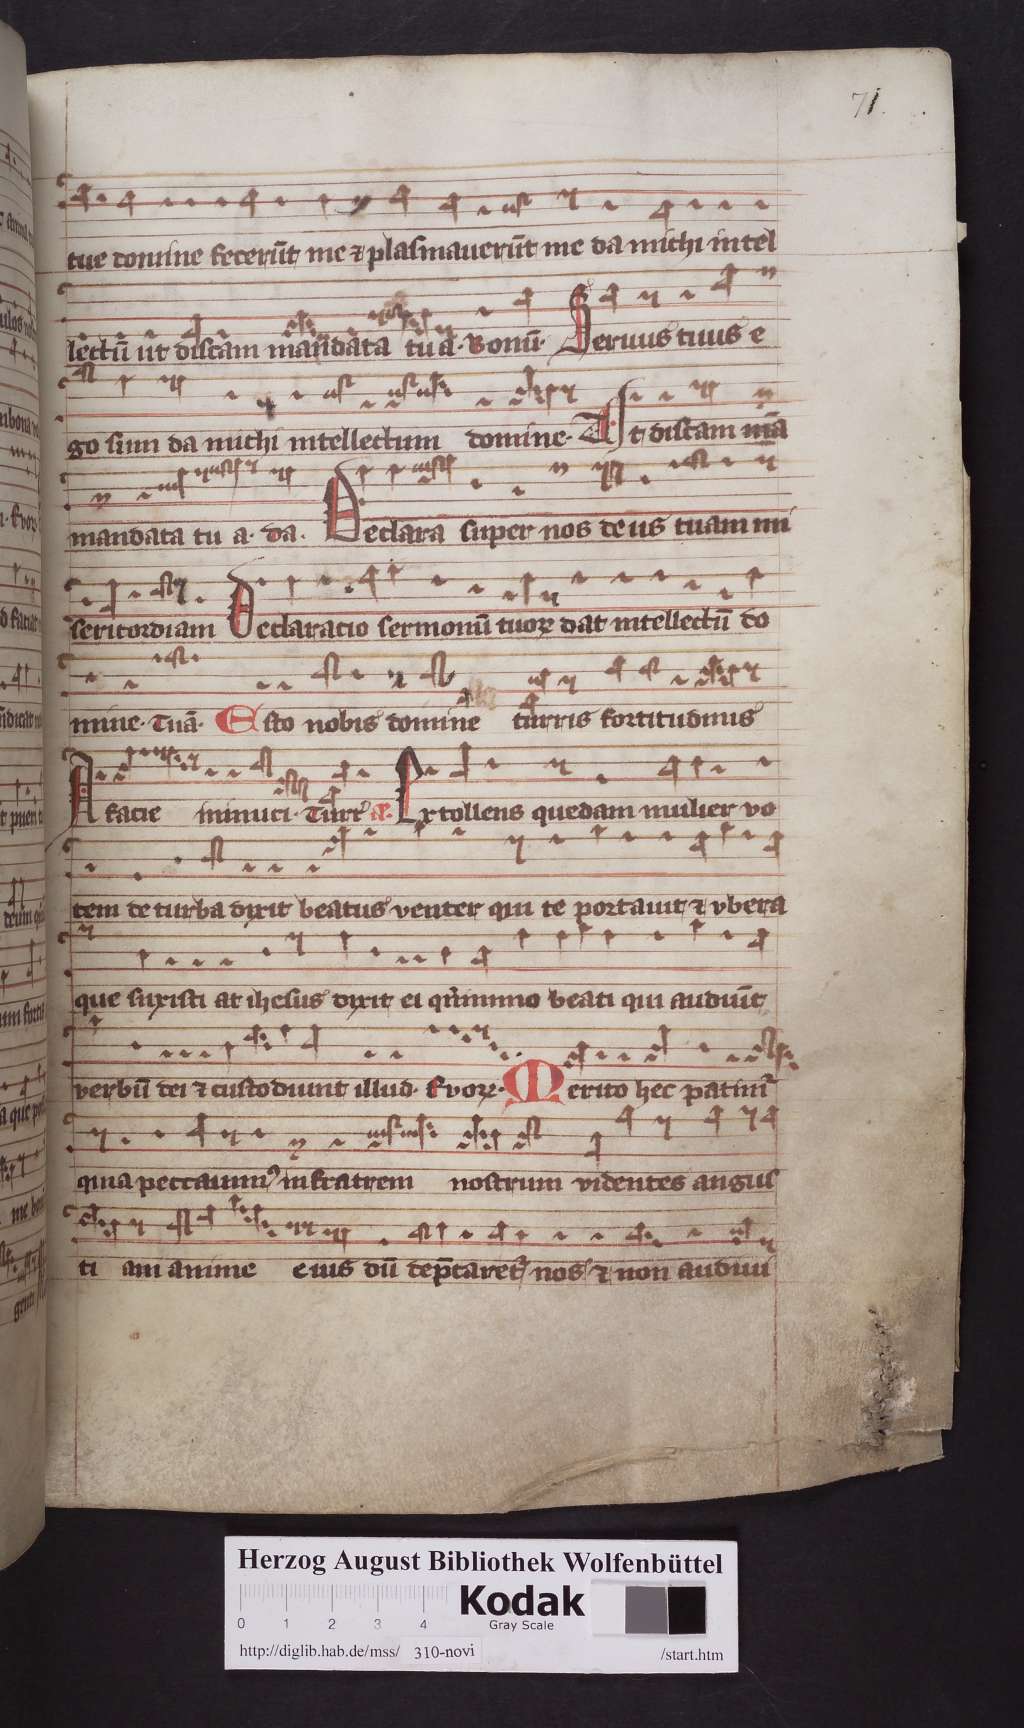 71.
tue domine fecerūt me ⁊ plasmauerūt me da michi intel
lectū ut discam mandata tua. Bonū. Seruus tuus e
go sum da michi intellectum domine. Ut discam mā
mandata tu a. da. Declara super nos deus tuam mi
sericordiam Declaracio sermonū tuoꝝ dat intellectū do
mine. Tuā. Esto nobis domine turris fortitudinis
A facie inimici. Turr̄ Extollens quedam mulier vo
cem de turba dixit beatus venter qui te portauit ⁊ vbera
que suxisti at ihesus dixit ei qn̄immo beati qui audiūt
verbū dei ⁊ custodiunt illud. Evoꝝ. Merito hec patimr̄
quia peccauimꝰ in fratrem nostrum videntes angus
ti am anime eius dū dep̄caretꝰ nos ⁊ non audiui
Herzog August Bibliothek Wolfenbüttel
Kodak
Gray Scale
0 1 2 3 4
http://diglib.hab.de/mss/ 310-novi /start.htm